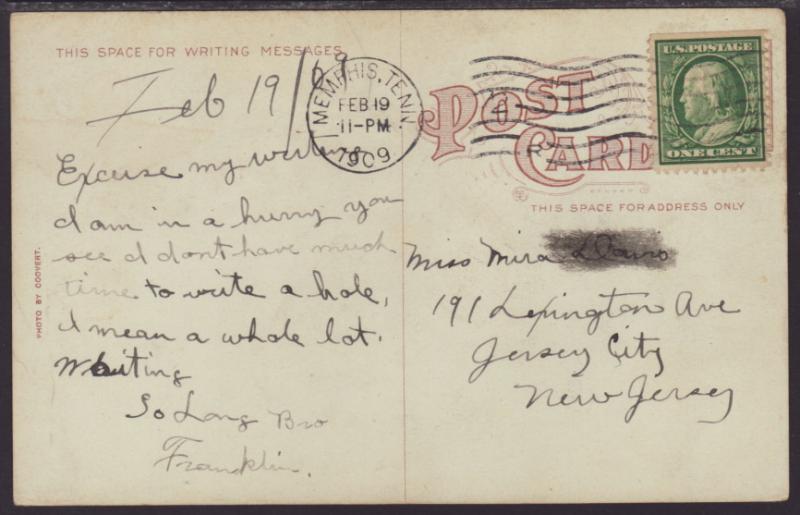 THIS SPACE FOR WRITING MESSAGES
Feb 19/09
Excuse my writing
I am in a hurry you
see I dont have much
time to write a hole,
I mean a whole lot.
Waiting
So Long Bro
Franklin.
PHOTO BY COOVERT.
MEMPHIS, TENN.
FEB 19
11-PM
1909
POST
CARD
U.S. POSTAGE
ONE CENT
THIS SPACE FOR ADDRESS ONLY
Miss Mira
191 Lexington Ave
Jersey City
New Jersey